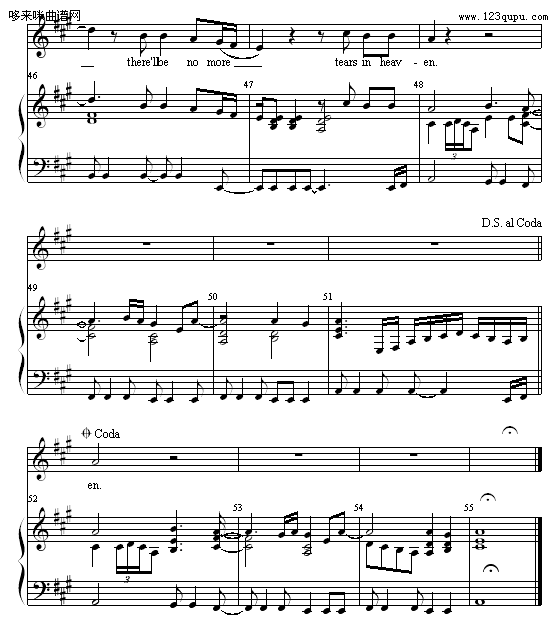 哆来咪曲谱网
www.123qupu.com
there'll be no more tears in heav- en.
46 47 48
3
D.S. al Coda
49 50 51
Coda
en.
52 53 54 55
3